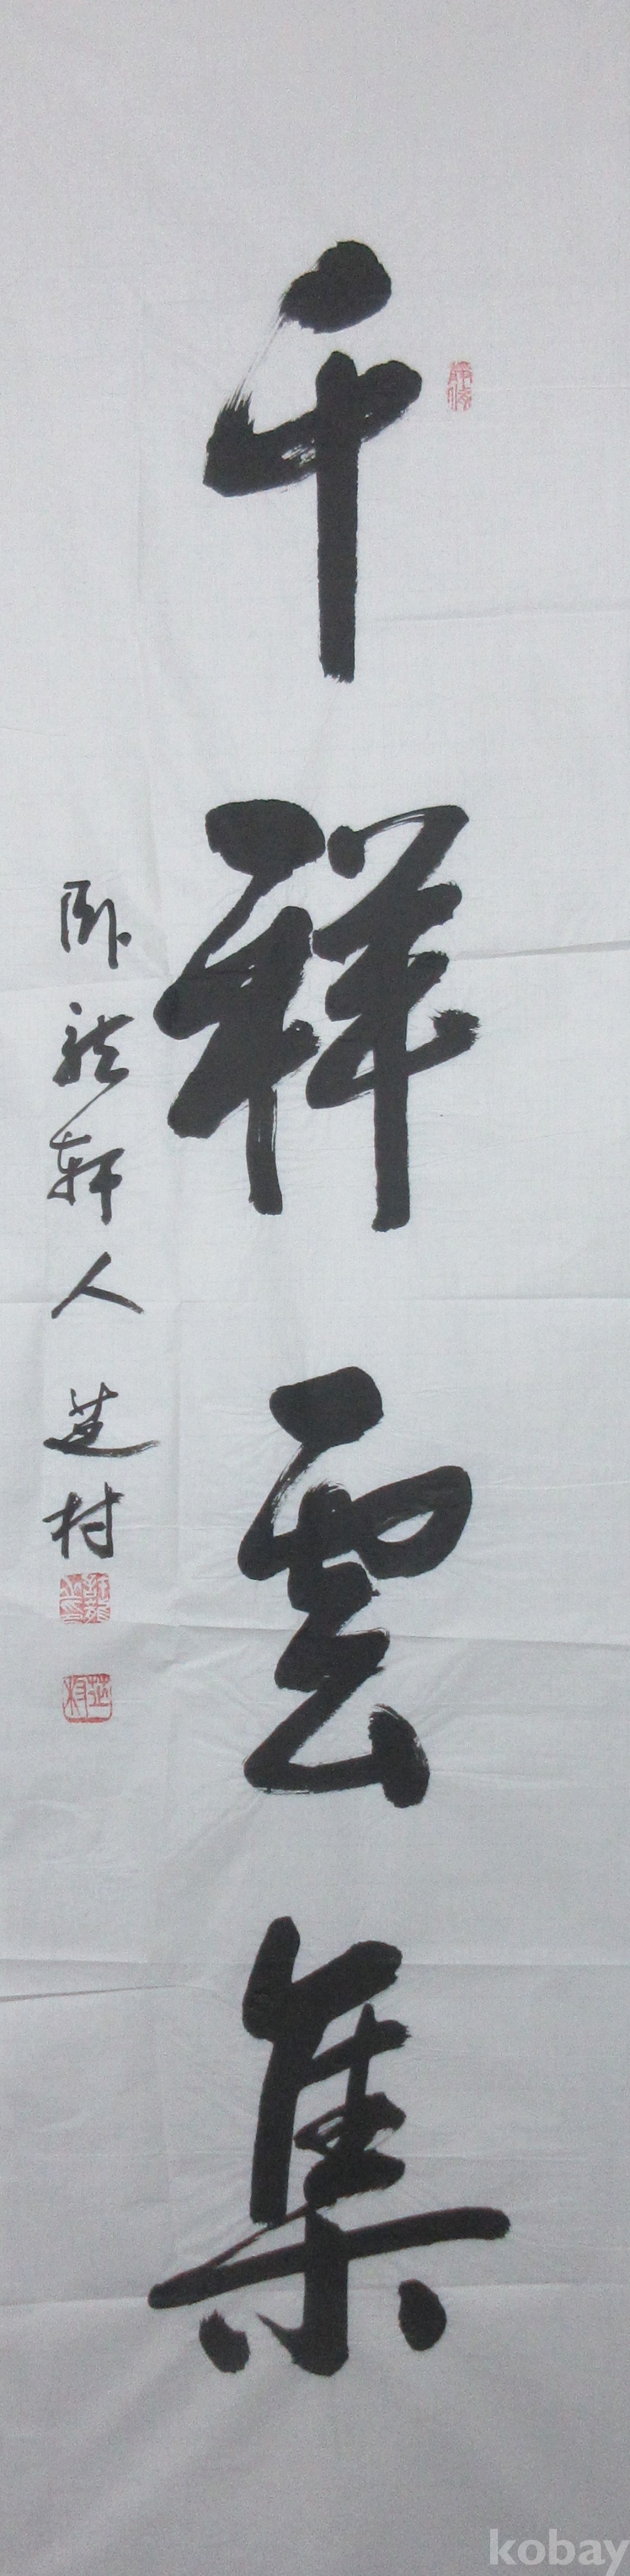 千祥雲集
臥龍軒人 芝村
kobay